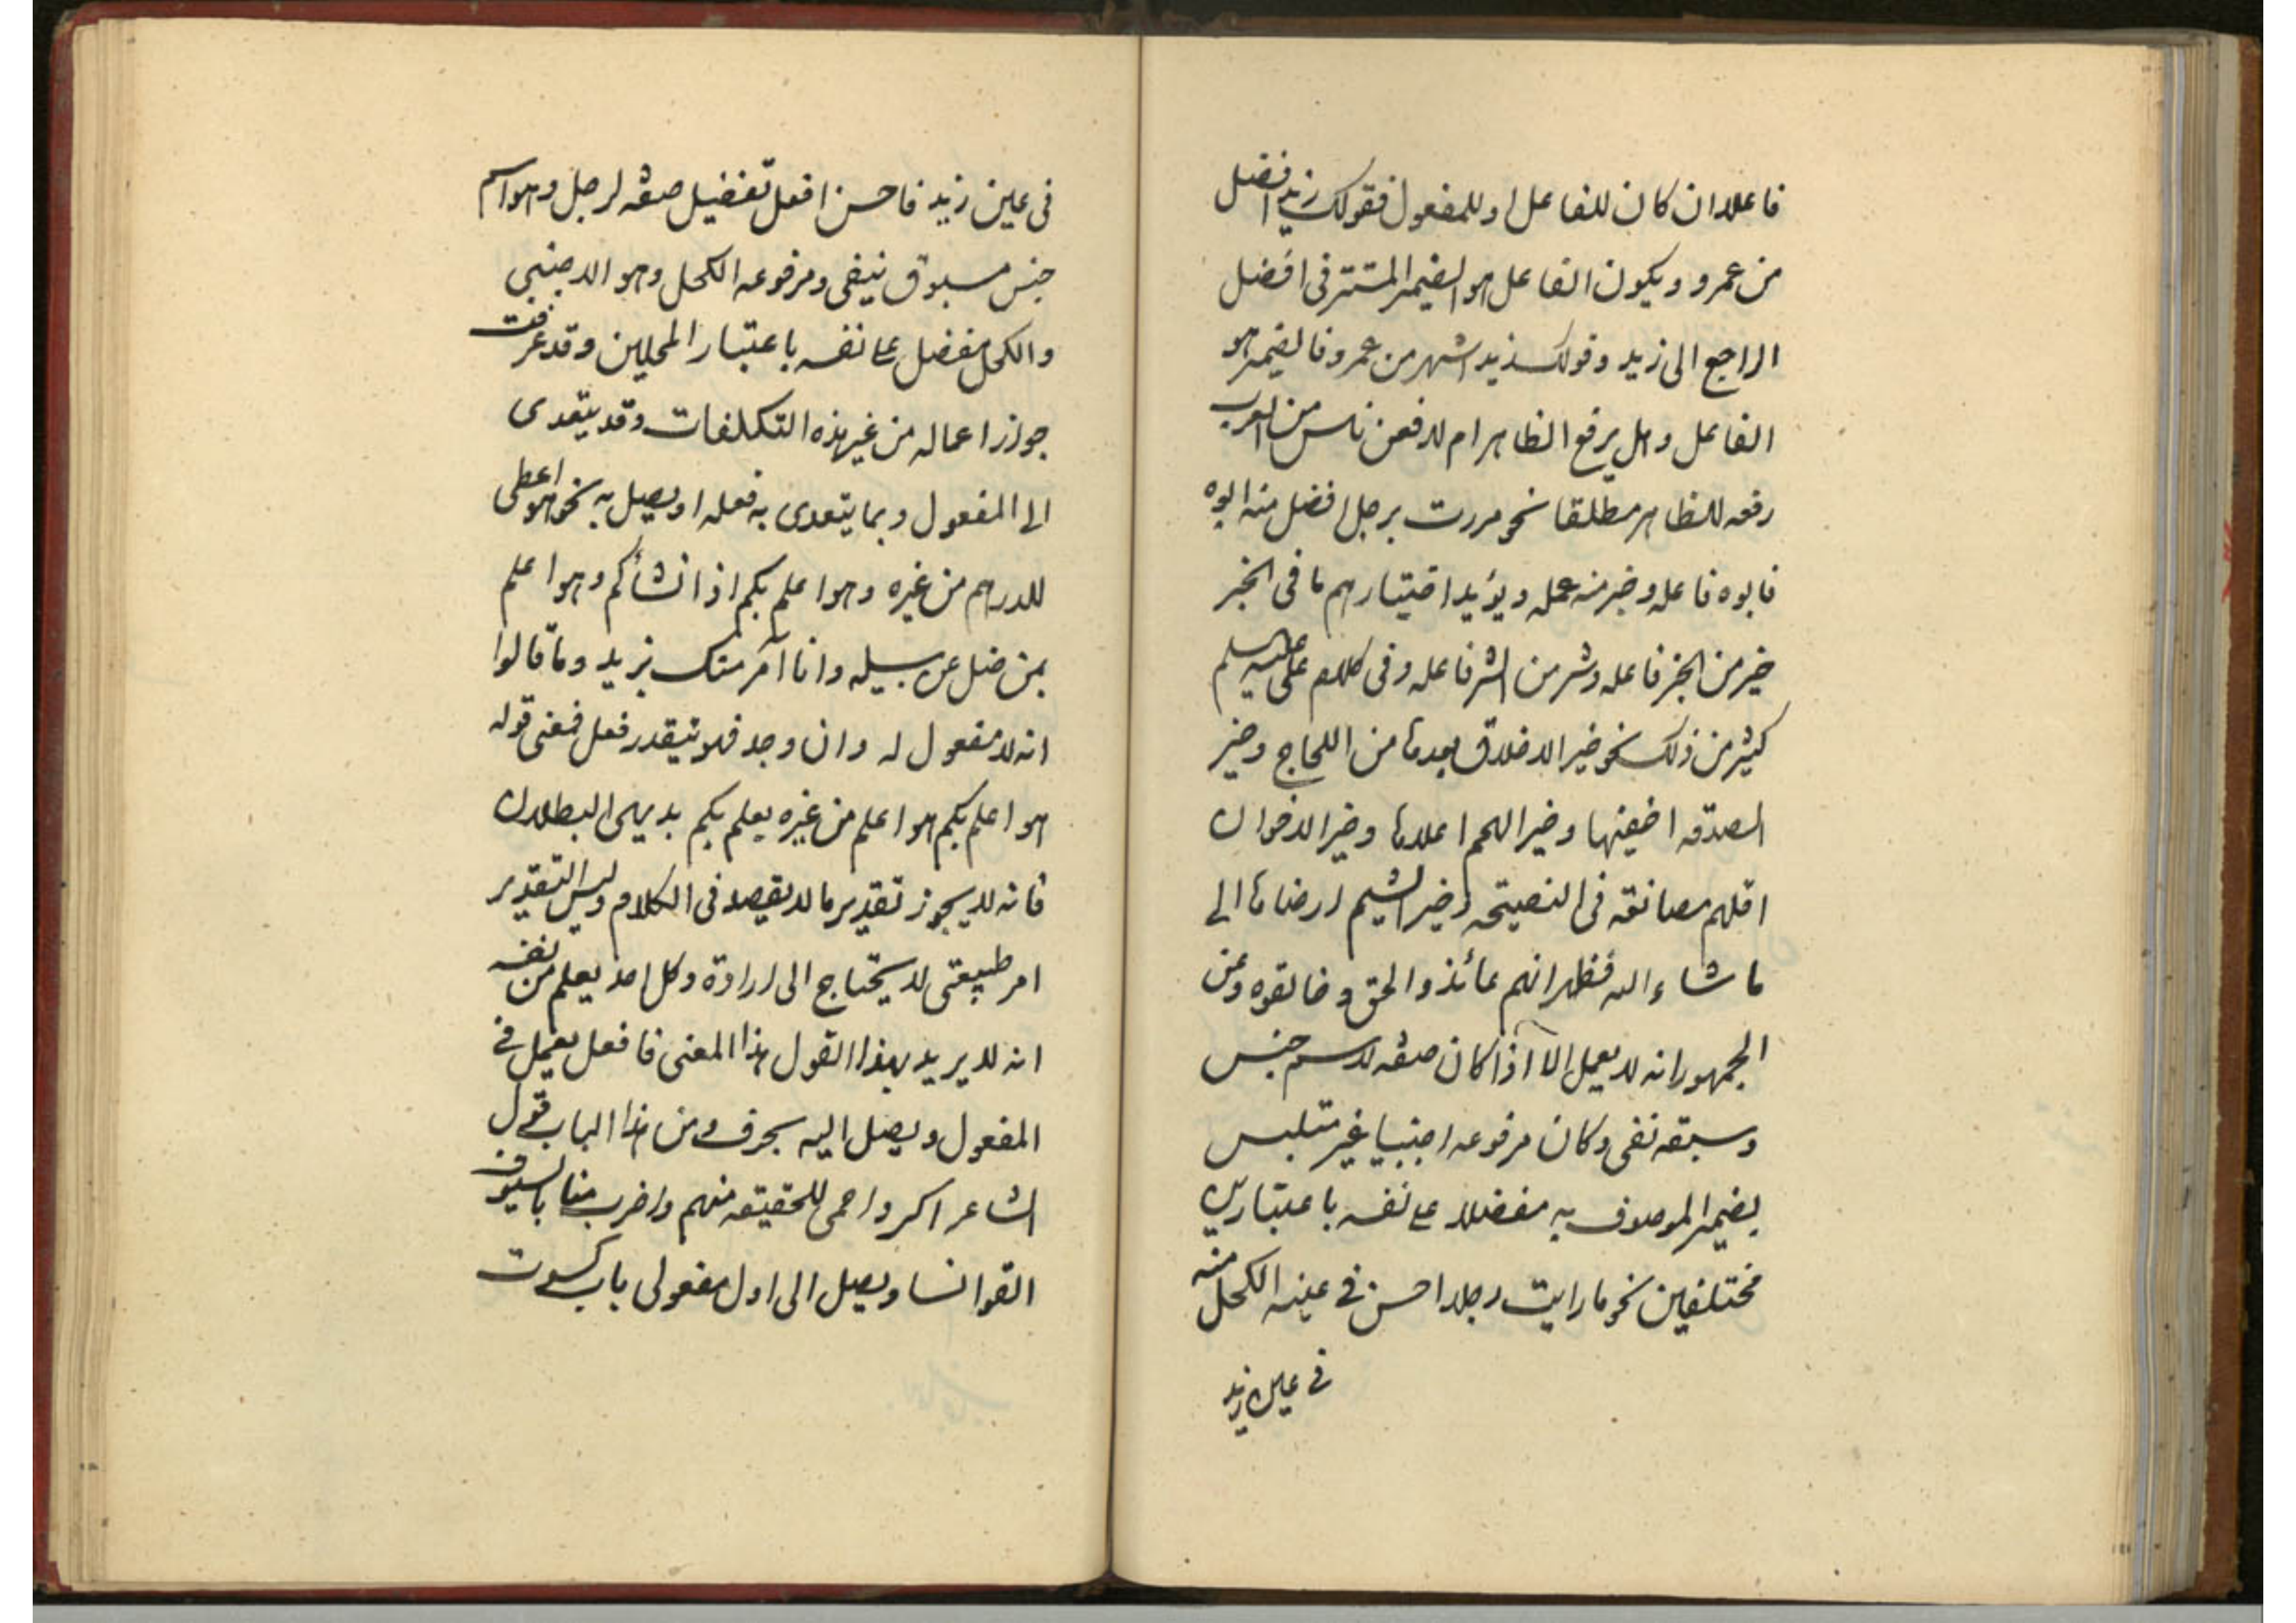 فاعلا ان كان للفاعل او للمفعول فقولك زيد افضل
من عمرو ويكون الفاعل هو الضمير المستتر فى افضل
الراجع الى زيد وقولك زيد اشهر من عمرو فالضمير هو
الفاعل وهل يرفع الظاهر ام لا فعن ناس من العرب
رفعه للظاهر مطلقا نحو مررت برجل افضل منه ابوه
فابوه فاعله وخير منه عمله ويؤيد اختيارهم ما فى الخبر
خير من الخير فاعله وشر من الشر فاعله وفى كلام على عليه السلم
كثير من ذلك نحو خير الاخلاق بعدها من اللجاج وخير
الصدقه اخفيها وخير الهمم اعلاها وخير الاخوان
اقلهم مصانعه فى النصيحه وخير الشيم ارضاها الى
ما شاء الله فظهر انهم عائذوا الحق و خالفوه وعن
الجمهور انه لا يعمل الا اذا كان صفه لاسم جنس
وسبقه نفى وكان مرفوعه اجنبيا غير متلبس
بضمير الموصوف به مفضلا على نفسه باعتبارين
مختلفين نحو ما رايت رجلا احسن فى عينه الكحل منه
فى عين زيد
فى عين زيد فاحسن افعل تفضيل صفه لرجل وهو اسم
جنس مسبوق بنفى ومرفوعه الكحل وهو الاجنبى
والكحل مفضل على نفسه باعتبار المحلين وقد عرفت
جواز اعماله من غير هذه التكلفات وقد يتعدى
الى المفعول وبما يتعدى به فعله او يصل به نحو هو اعطى
للدرهم من غيره وهو اعلم بكم اذ انشأكم وهو اعلم
بمن ضل عن سبيله وانا آمر منك بزيد وما قالوا
انه لا مفعول له وان وجد فهو بتقدير فعل فمعنى قوله
هو اعلم بكم هو اعلم من غيره يعلم بكم بديهى البطلان
فانه لا يجوز تقدير ما لا يقصد فى الكلام وليس التقدير
امر طبيعتى لا يحتاج الى ارادة وكل احد يعلم من نفسه
انه لا يريد بهذا القول هذا المعنى فافعل يعمل فى
المفعول ويصل اليه بحرف ومن هذا الباب قول
الشاعر اكر واحمى للحقيقه منهم واضرب منا بالسيوف
القوانسا ويصل الى اول مفعولى باب كسوت